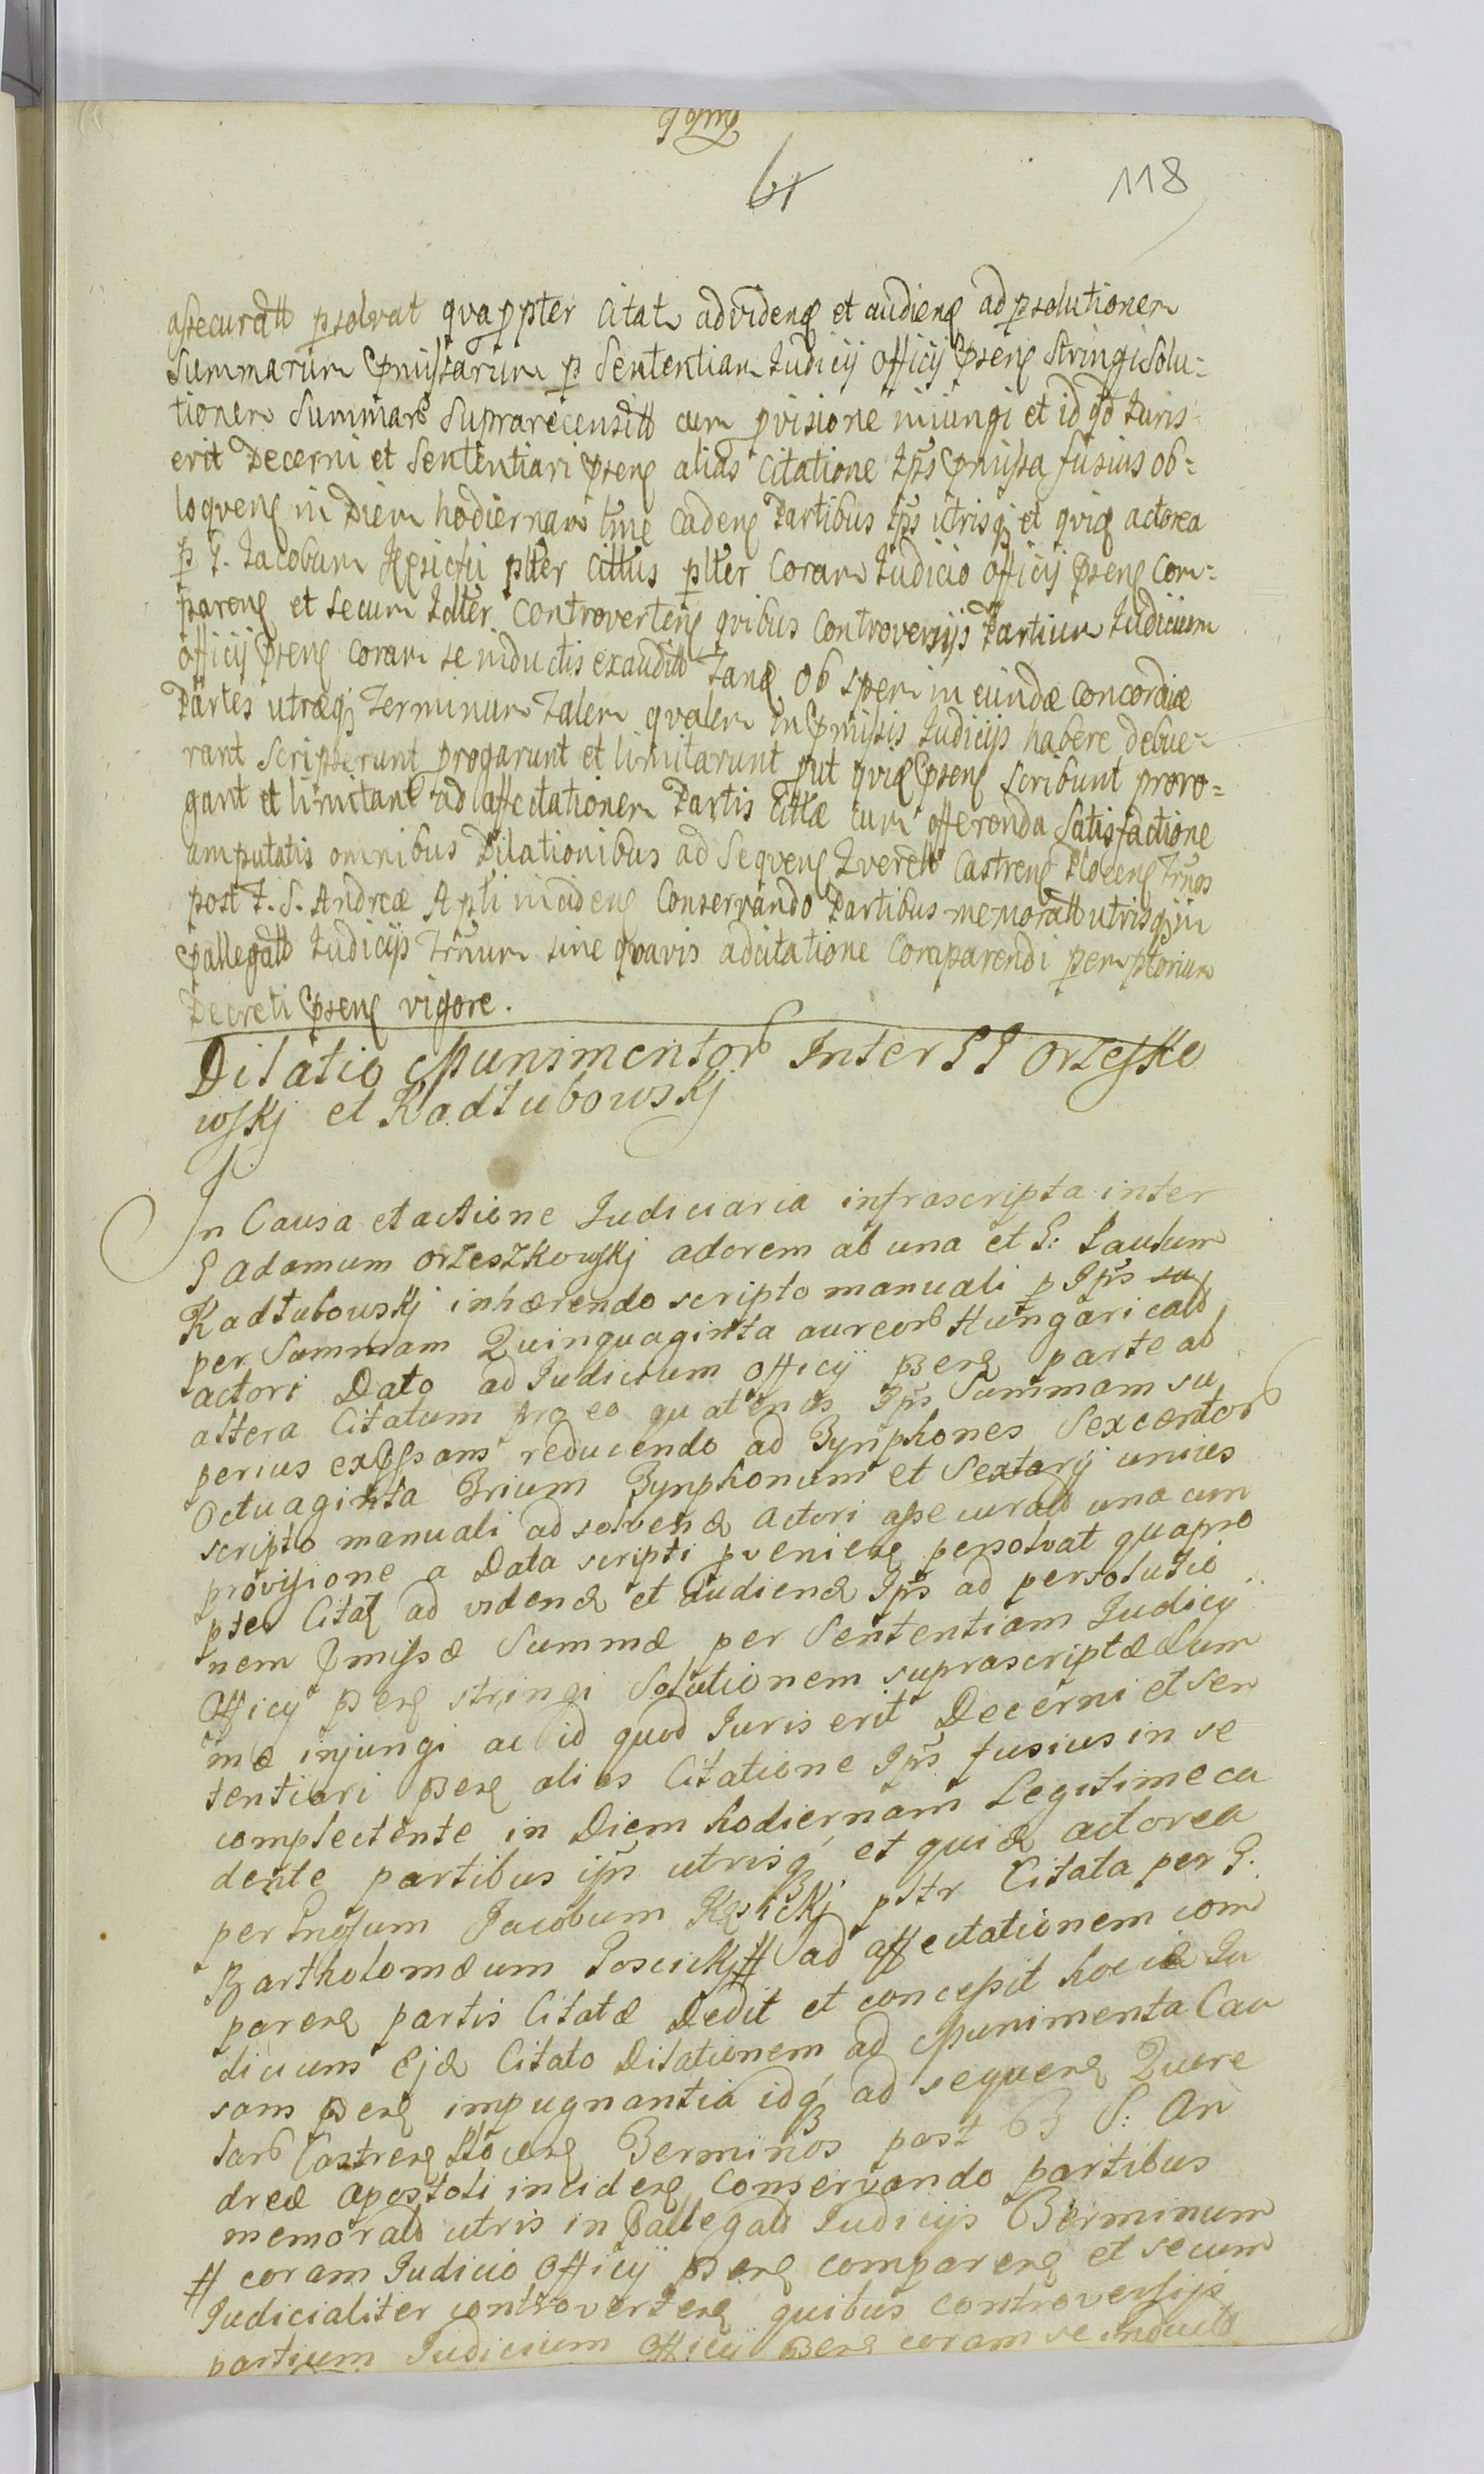 118
assecuratt psolvat qvappter Citat ad videnđ et audienđ ad psolutionem
Summarum pmissarum p Sententiam Judicij Officij psenŧ Stringi Solu-
tionem Summarŭ Suprarecensitt cum pvisione iniungi et id qd Juris
erit Decerni et Sententiari psenŧ alias Citatione Iprs pmissa fusius ob-
loqvenŧ in Diem hodiernam tme Cadenŧ Partibus Iprs utrisq et qvid actorea
p G. Jacobum Kęsicki plter Cittus plter Coram Judicio Officij psenŧ Com-
parenŧ et secum Jdlter Controvertenŧ qvibus Controversijs Partium Judicium
Officij psenŧ Coram se inductis exauditt Tanđ Ob spem in eundæ Concordiæ
Partes utræq Terminum Talem qvalem in pmissis Judicijs habere debue-
rant Scripserunt progarunt et limitarunt put qvid psenŧ Scribunt proro-
gant et limitant ad affectationem Partis Cittæ cum offerenda Satisfactione
amputatis omnibus Dilationibus ad Seqvenŧ Qverell Castrenŧ Plocenŧ Trnos
post F. S. Andreæ Apli incidenŧ Conservando Partibus memoratt utrisq in
pallegatt Judicijs Trnum sine qvavis adcitatione Comparendi peremptorium
Decreti psenŧ vigore.
Dilatio Munimentorŭ Inter GG Orzeszko
wskj et Radłubowskj
In Causa et actione Judiciaria infrascripta inter
G Adamum Orzeszkowskj actorem ab una et G: Paulum
Radłubowskj inhærendo scripto manuali p Iprs su
per Summam Quinquaginta aureorŭ Hungaricald
actori Dato ad Judicium Officij psenŧ parte ab
altera Citatum pro eo quatenus Iprs Summam su
perius expssam reducendo ad Tynphones Sexcentorŭ
Octuaginta Trium Tynphonum et Sextarij unius
scripto manuali ad solvenđ actori assecuratd una cum
provisione a Data scripti pvenienŧ persolvat quapro
pter Citatŧ ad videnđ et audienđ Iprs ad persolutio
nem pmissæ Summæ per Sententiam Judicij
Officij psenŧ stringi Solutionem suprascriptæ Sum
mæ injungi ac id quod Juris erit Decerni et Sen
tentiari psenŧ alias Citatione Iprs fusius in se
complectente in Diem hodiernam Legitime ca
dente partibus iprs utrisq et quid actorea
per Gnosum Jacobum Kęsickj pltr Citata per G.
Bartholomæum Joscickj # ad affectationem com
parenŧ partis Citatæ Dedit et concessit hocce Ju
dicium Ejđ Citato Dilationem ad Munimenta Cau
sam psenŧ impugnantia idq ad sequenŧ Quere
larŭ Castrenŧ Plocenŧ Terminos post F S: An
dreæ Apostoli incidenŧ Conservando partibus
memoratd utris in pallegatd Judicijs Terminum
# coram Judicio Officij psenŧ comparenŧ et secum
Judicialiter controvertenŧ quibus controversijs
partium Judicium Officij psenŧ coram se inductd